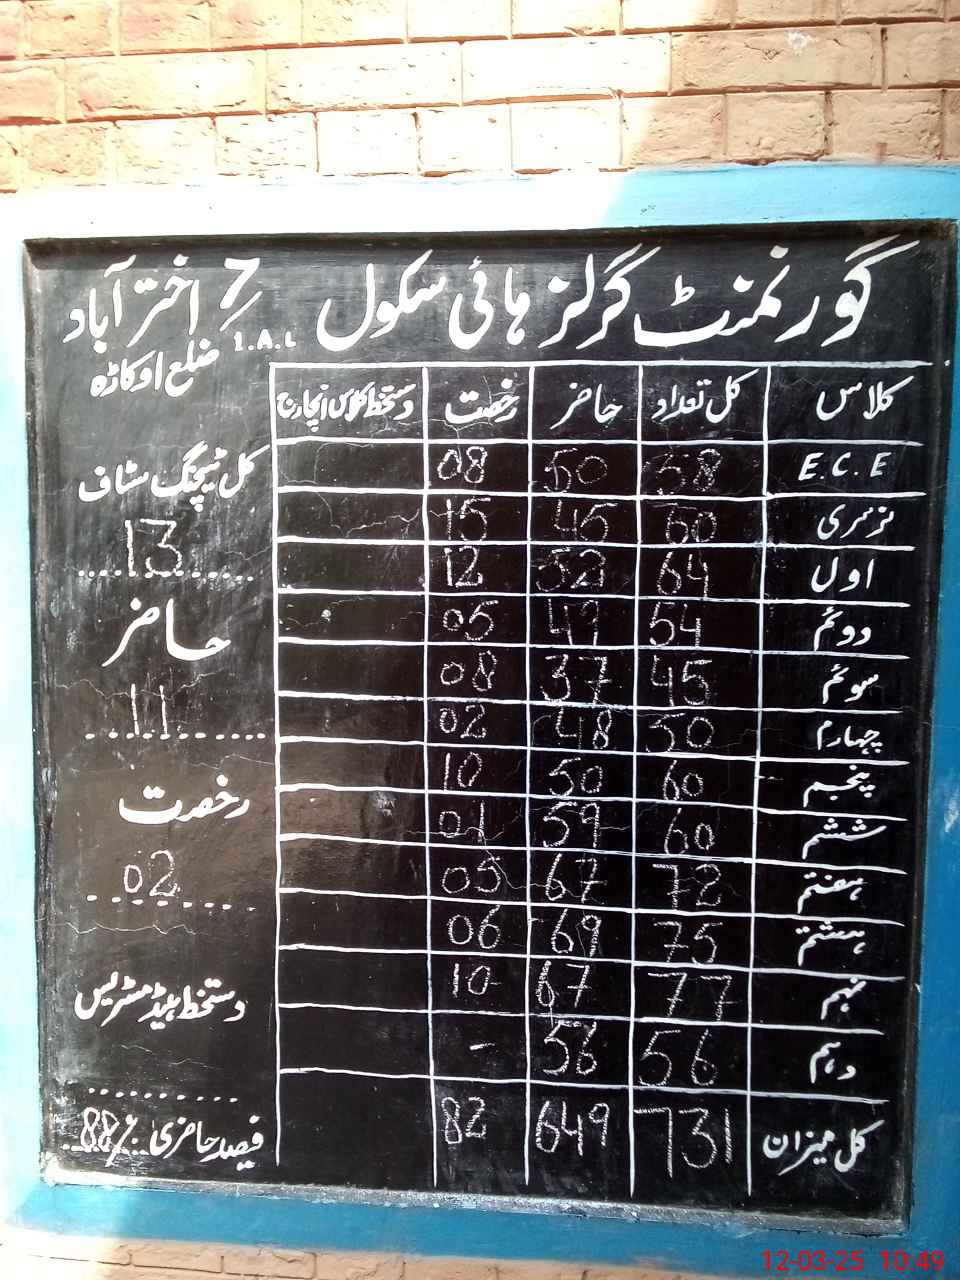 گورنمنٹ گرلز ہائی سکول 7/1.A.L اختر آباد
ضلع اوکاڑہ
کلاس کل تعداد حاضر رخصت دستخط کلاس انچارج
E.C.E 58 50 08
نرسری 60 45 15
اول 64 52 12
دوئم 54 49 05
سوئم 45 37 08
چہارم 50 48 02
پنجم 60 50 10
ششم 60 59 01
ہفتم 72 67 05
ہشتم 75 69 06
نہم 77 67 10
دہم 56 56 -
کل میزان 731 649 82
کل ٹیچنگ سٹاف
13
حاضر
11
رخصت
02
دستخط ہیڈ مسٹریس
فیصد حاضری 88%
12-03-25 10:49